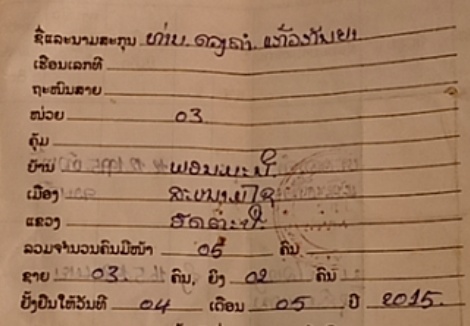 ຊື່ແລະນາມສະກຸນ ທ່ານ ດວງຄຳ ແກ້ວກັນຍາ
ເຮືອນເລກທີ
ຖະໜົນສາຍ
ໜ່ວຍ 03
ຄຸ້ມ
ບ້ານ
ເມືອງ ສະໜາມໄຊ
ແຂວງ ອັດຕະປື
ລວມຈຳນວນຄົນມີໜ້າ 05 ຄົນ
ຊາຍ 03. ຄົນ, ຍິງ 02 ຄົນ
ຢັ້ງຢືນໃຫ້ວັນທີ 04 ເດືອນ 05 ປີ 2015.